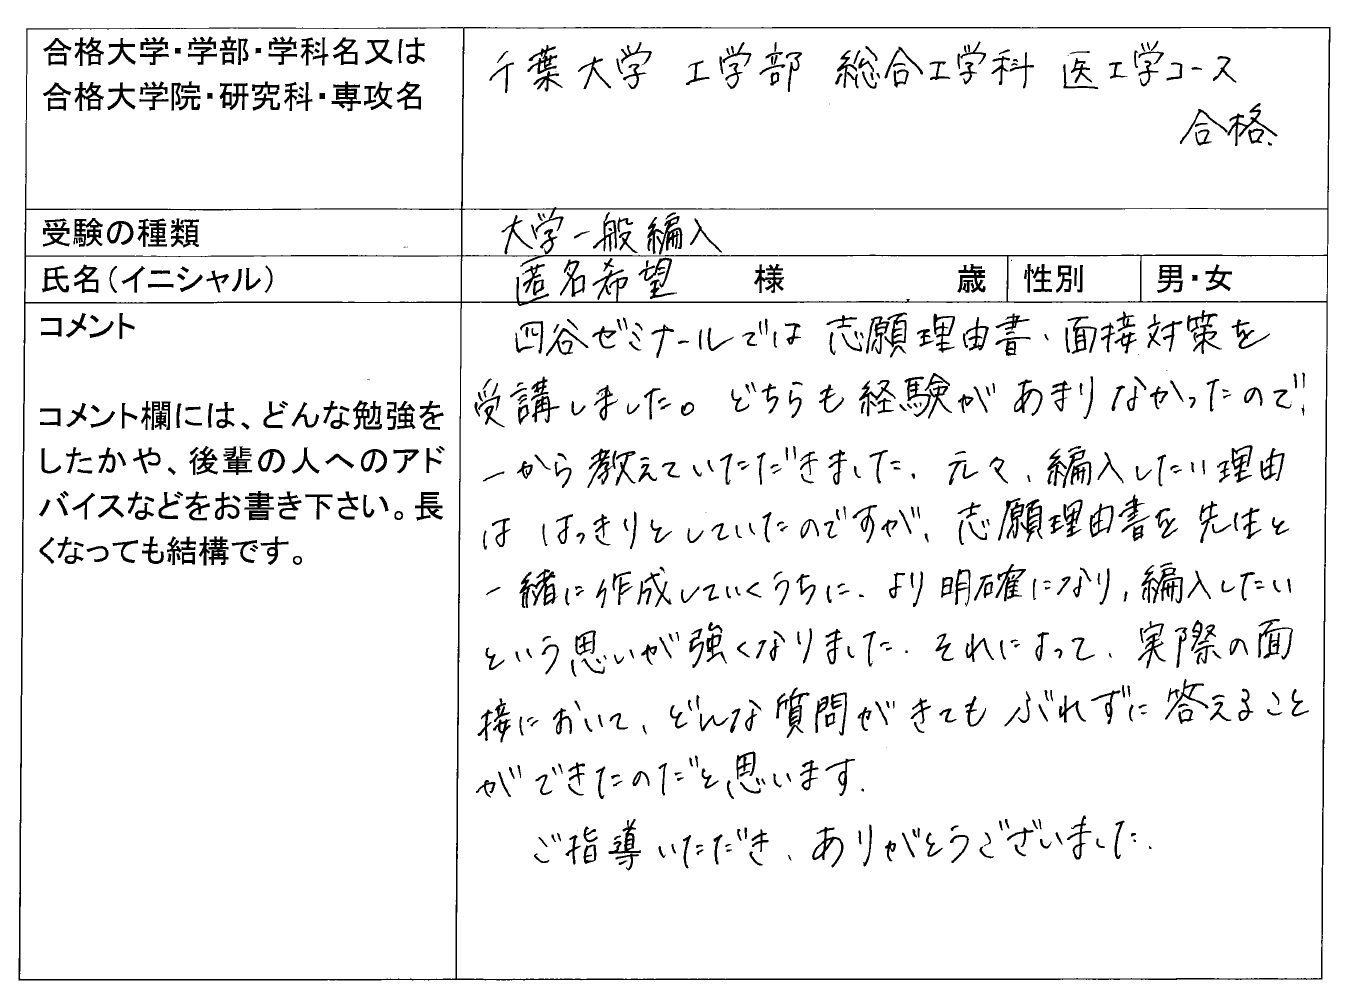 合格大学・学部・学科名又は
合格大学院・研究科・専攻名
千葉大学 工学部 総合工学科 医工学コース
合格.
受験の種類
大学一般編入
氏名(イニシャル)
匿名希望 様 歳 性別 男・女
コメント
コメント欄には、どんな勉強を
したかや、後輩の人へのアド
バイスなどをお書き下さい。長
くなっても結構です。
四谷ゼミナールでは志願理由書・面接対策を
受講しました。どちらも経験があまりなかったので、
一から教えていただきました. 元々、編入したい理由
は はっきりとしていたのですが、志願理由書を先生と
一緒に作成していくうちに、より明確になり、編入したい
という思いが強くなりました. それによって、実際の面
接において、どんな質問がきてもぶれずに答えること
ができたのだと思います.
ご指導いただき、ありがとうございました.